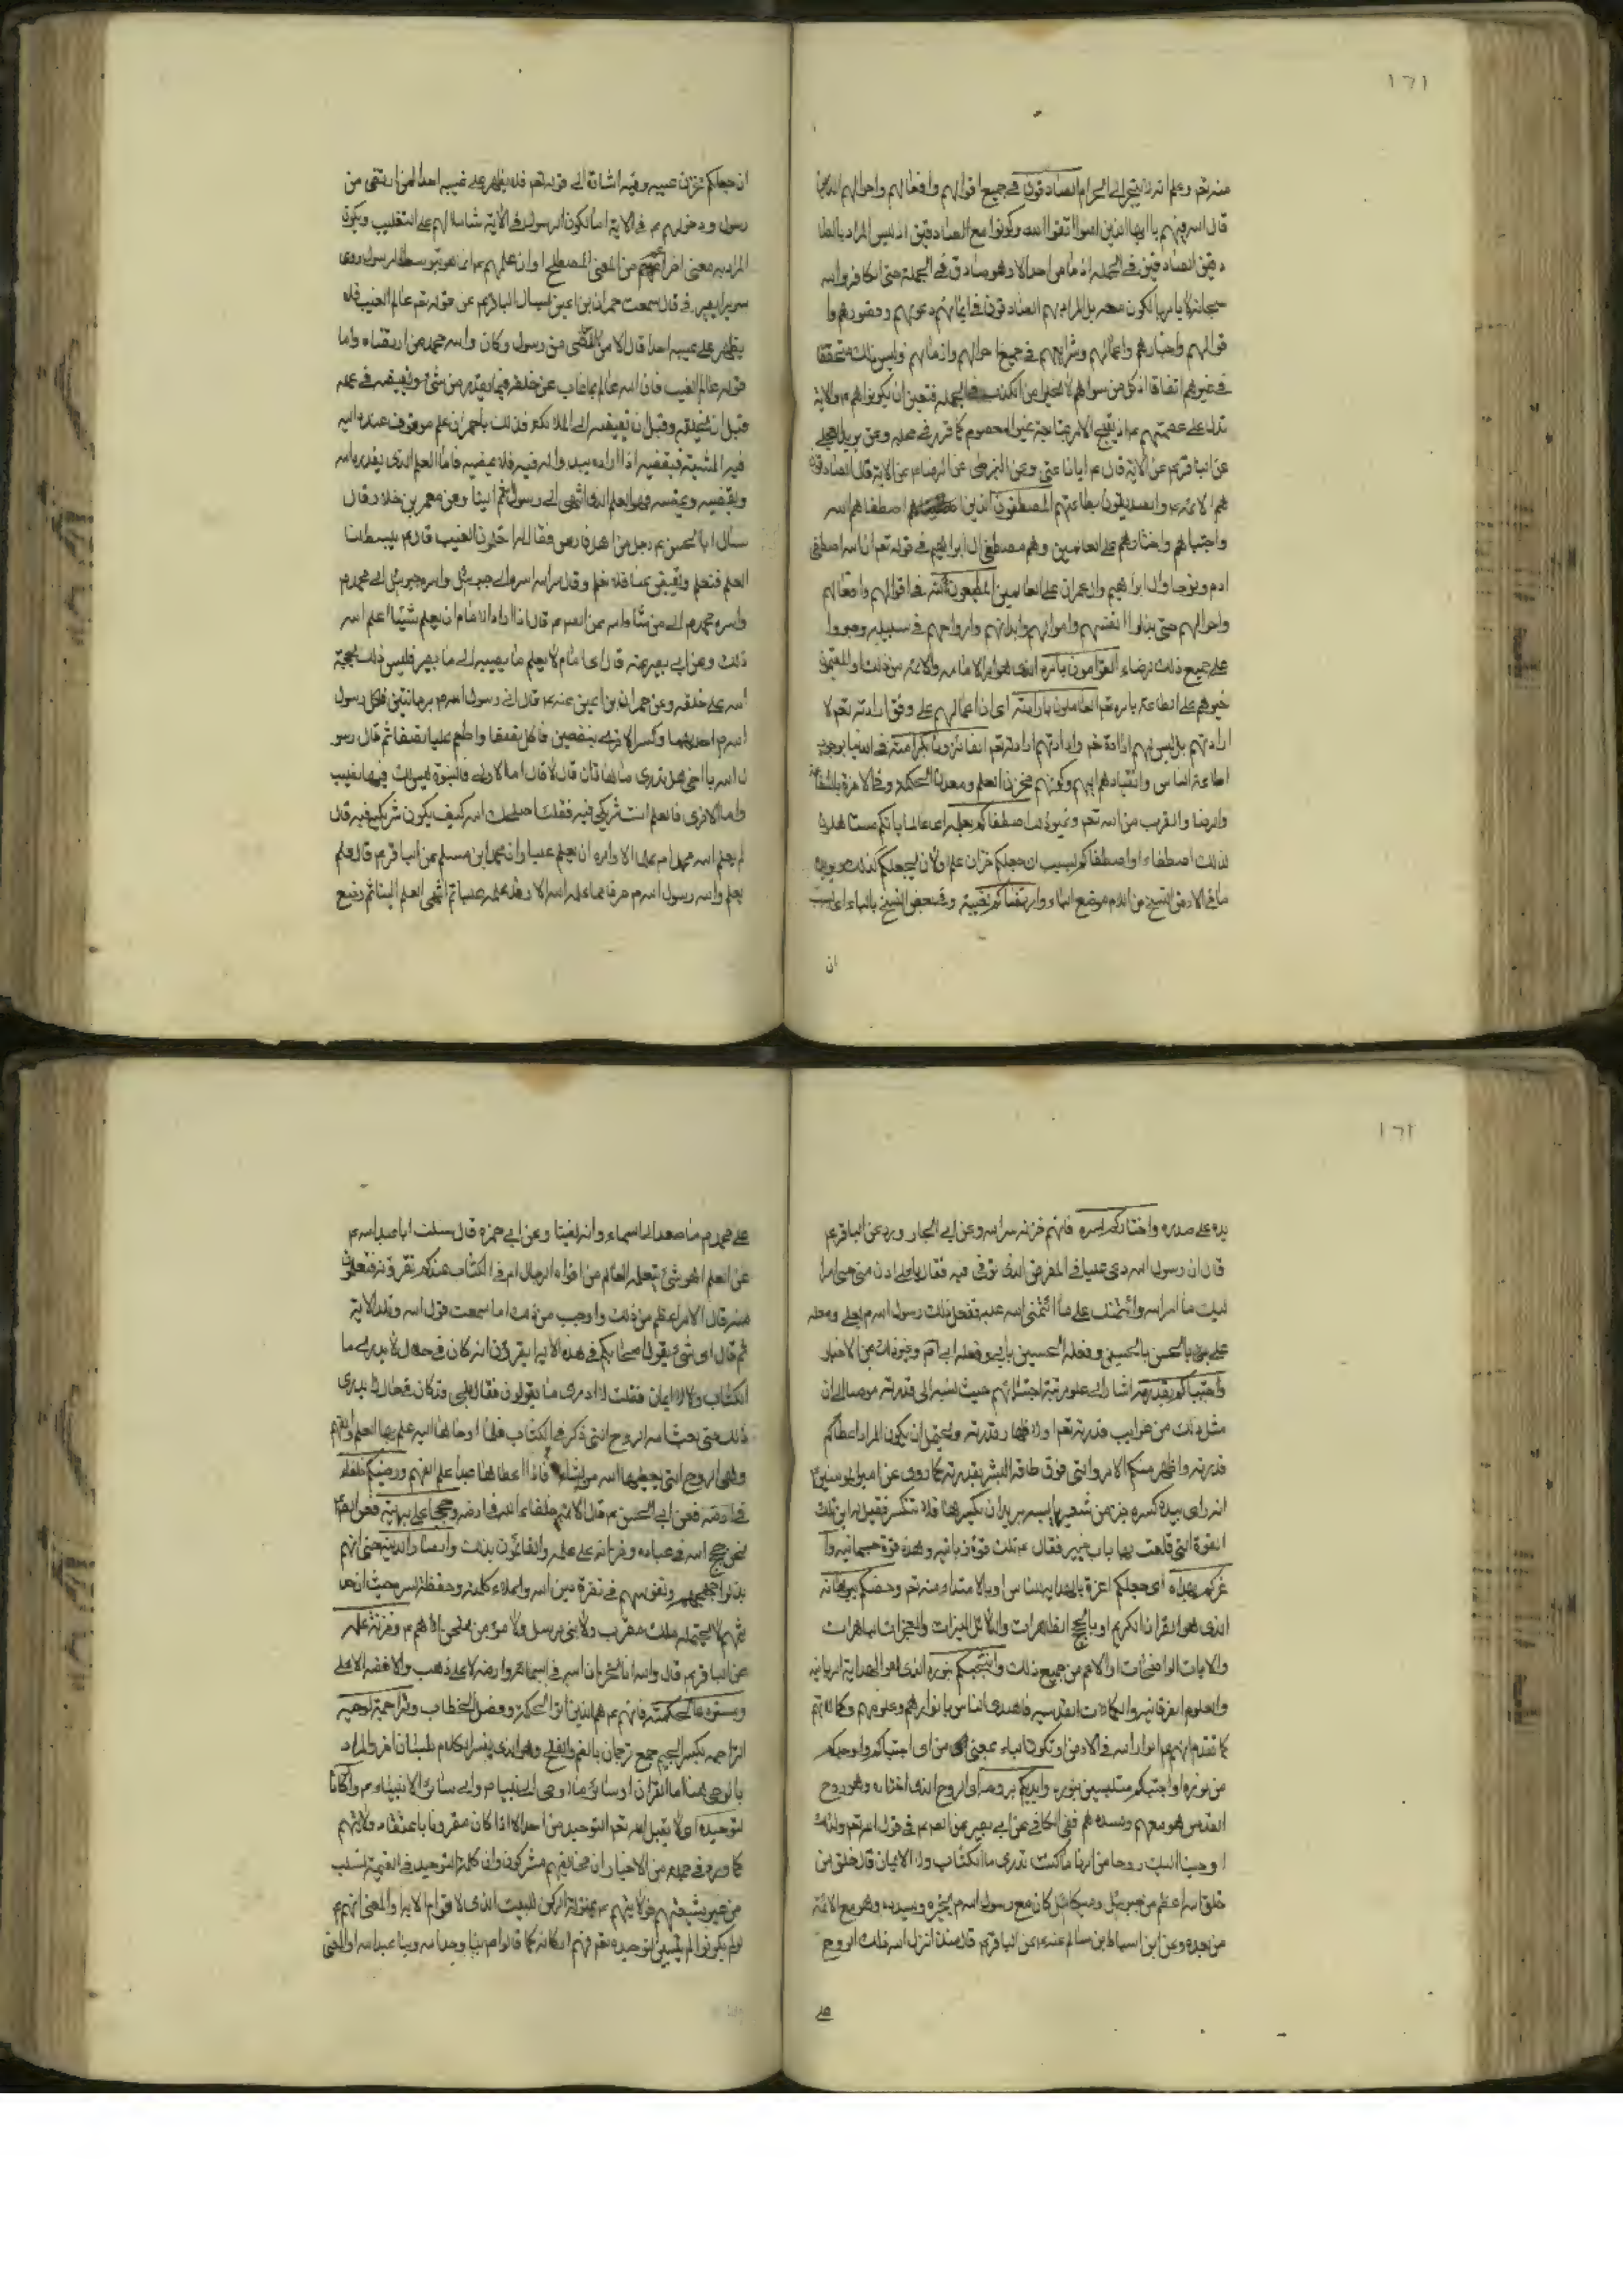 ١٦١
منه تعم وعلم انه لا يتجرا الى الحرام الصادقون في جميع اقوالهم وافعالهم واحوالهم الذين
قال الله فيهم يا ايها الذين امنوا اتقوا الله وكونوا مع الصادقين اذ ليس المراد بالصا
دقين الصادقين في الجملة اذ ما من احد الا وهو صادق في الجملة حتى الكافر والله
سبحانه لا يامر بالكون معه بل المراد بهم الصادقون في ايمانهم وعهودهم و
قوالهم واخبارهم واعمالهم وشرايعهم في جميع احوالهم وازمانهم وليس ذلك متحققا
في غيرهم اتفاقا اذ كل من سواهم لا يخلو من الكذب في الجملة فتعين ان يكونوا هم ع ولانه
تدل على عصمتهم ع اذ يقبح الامر بمتابعة غير المعصوم كما قرر في محله وعن بريد العجلي
عن الباقر ع عن الاية قال ع ايانا عنى وعن البزنطي عن الرضا ع عن الاية قال الصادقون
هم الائمة ع والصديقون بطاعتهم المصطفون الذين اصطفاهم الله
واجتباهم واختارهم على العالمين وهم مصطفى ال ابراهيم في قوله تعم ان الله اصطفى
ادم ونوحا وال ابراهيم وال عمران على العالمين المطيعون لله في اقوالهم وافعالهم
واحوالهم حتى بذلوا انفسهم واموالهم وابدانهم وارواحهم في سبيله وصبروا
على جميع ذلك لرضاءه القوامون بامره الذي هو امر الامامة والائمة من ذلك والمقيمون
غيرهم على الطاعة بامره تعم العاملون بارادته اي ان اعمالهم على وفق ارادته تعم لا
ارادتهم بل ليس لهم ارادة غير وارادتهم ارادته تعم الفائزون بكرامته في الدنيا بوجوب
اطاعة الناس وانقيادهم اليهم وكونهم مخزن العلم ومعدن الحكمة وفي الاخرة بالشفاعة
والرضا والقرب من الله تعم وغير ذلك اصطفاكم بعلمه اي عالما بانكم مستاهلون
لذلك اصطفاء او اصطفاكم لسبب ان جعلكم خزان علمه ولان يجعلكم كذلك ويويده
ما في الارض النسخ من اللام موضع الباء وارتضاكم لغيبه وفي بعض النسخ بالباء اي
ان
ان جعلكم خزان غيبه وفيه اشارة الى قوله تعم فلا يظهر على غيبه احدا الا من ارتضى من
رسول ودخولهم ع في الاية اما لكون الرسول في الاية شاملا لهم على التغليب ويكون
المراد به معنى اخر اعم من المعنى المصطلح او ان علمهم ع انما هو بتوسط الرسول روى
سدير الصيرفي قال سمعت حمران بن اعين يسال الباقر ع عن قوله تعم عالم الغيب فلا
يظهر على غيبه احدا قال الا من ارتضى من رسول وكان والله محمد ممن ارتضاه واما
قوله عالم الغيب فان الله عالم بما غاب عن خلقه فيما يقدر من شيء ويقضيه في علمه
قبل ان يخلقه وقبل ان يقضيه الى الملائكة فذلك يا حمران علم موقوف عنده اليه
فيه المشية فيقضيه اذا اراد ويبدو له فيه فلا يمضيه فاما العلم الذي يقدره الله
ويقضيه ويمضيه فهو العلم الذي انتهى الى رسول الله ثم الينا وعن معمر بن خلاد قال
سال ابا الحسن ع رجل من اهل فارس فقال له اتعلمون الغيب قال ع يبسط لنا
العلم فنعلم ويقبض عنا فلا نعلم وقال سر الله اسره الى جبرئيل واسره جبرئيل الى محمد ص
واسره محمد ص الى من شاء الله وعن الصم ع قال اذا اراد الامام ان يعلم شيئا اعلمه الله
ذلك وعن ابي بصير عنه قال اي امام لا يعلم ما يصيبه والى ما يصير فليس ذلك بحجة
الله على خلقه وعن حمران بن اعين عنه ع قال اتى رسول الله ص برمانتين فاكل رسول
الله ص احديهما وكسر الاخرى بنصفين فاكل نصفا واطعم عليا نصفا ثم قال رسو
ل الله يا اخي هل تدري ما هاتان قال لا قال اما الاولى فالنبوة ليس لك فيها نصيب
واما الاخرى فالعلم انت شريكي فيه فقلت اصلحك الله كيف يكون شريكه فيه قال
لم يعلم الله محمدا ص علما الا وامره ان يعلمه عليا وعن محمد بن مسلم عن الباقر ع قال علم
يعلم والله رسول الله ص حرفا مما علمه الله الا وقد علمه عليا ثم انتهى العلم الينا ثم وضع
١٦٢
يده على صدره واختاركم لسره فانهم خزنة سر الله وعن ابي الجارود عن الباقر ع
قال ان رسول الله دعى عليا في المرض الذي توفي فيه فقال يا علي ادن مني حتى اسر
اليك ما اسر الله الي وائتمنك على ما ائتمنني الله عليه ففعل ذلك رسول الله ص بعلي وفعله
علي ع بالحسن بالحسين وفعله الحسين بابي وفعله ابي بي وغير ذلك من الاخبار
واجتباكم بقدرته اشارة الى علو مرتبة اجتبائهم حيث نسبه الى قدرته موصلا الى ان
مثل ذلك من غرايب قدرته تعم اولا ظهار قدرته ويحتمل ان يكون المراد اعطاكم
قدرته واظهر منكم الامور التي فوق طاقة البشر بقدرته كما روى عن امير المؤمنين ع
انه راى بيده كسرة خبز من شعير يابسة يريد ان يكسرها فلا تنكسر فقيل له اين تلك
القوة التي قلعت بها باب خيبر فقال ع تلك قوة ربانية وهذه قوة جسمانية وا
عزكم بهداه اي جعلكم اعزة بالهداية للناس او بالاهتداء منه تعم وخصكم ببرهانه
الذي هو القران الكريم او بالحجج الظاهرات والدلائل النيرات والمعجزات الباهرات
والايات الواضحات او الاعم من جميع ذلك وانتجبكم بنوره الذي هو الهداية الربانية
والعلوم الفرقانية والكمالات القدسية فاهتدى الناس بانوارهم وعلومهم وكمالاتهم
كما تقدم انهم ع انوار الله في الارض او تكون الباء بمعنى من اي اجتباكم واوجدكم
من نوره او اجتباكم متلبسين بنوره وايدكم بروحه او الروح الذي اختاره وهو روح
القدس هو معهم ومسددهم ففي الكافي عن ابي بصير عن الصم ع في قول الله تعم وكذلك
اوحينا اليك روحا من امرنا ما كنت تدري ما الكتاب ولا الايمان قال خلق من
خلق الله اعظم من جبرئيل وميكائيل كان مع رسول الله ص يخبره ويسدده وهو مع الائمة
من بعده وعن ابن اسباط بن سالم عنه ع عن الباقر ع قال منذ انزل الله ذلك الروح
على
على محمد ص ما صعد الى السماء وانه لفينا وعن ابي حمزة قال سئلت ابا عبد الله ع
عن العلم اهو شيء يتعلمه العالم من افواه الرجال ام في الكتاب عندكم تقرؤنه فتعلمون
منه قال الامر اعظم من ذلك واوجب من ذلك اما سمعت قول الله وتلا الاية
ثم قال اي شيء يقول اصحابكم في هذه الاية ايقرؤن انه كان في حال لا يدري ما
الكتاب ولا الايمان فقلت لا ادري ما يقولون فقال بلى قد كان في حال لا يدري
ذلك حتى بعث الله الروح التي ذكر في الكتاب فلما اوحاها اليه علم بها العلم والفهم
وهي الروح التي يعطيها الله من يشاء فاذا اعطاها عبدا علمه الفهم ورضيكم خلفاء
في ارضه فعن ابي الحسن ع قال الائمة خلفاء الله في ارضه وحججا على بريته فعن الصم ع
نحن حجج الله في عباده وخزانه على علمه والقائمون بذلك وانصارا لدينه حتى انهم
بذلوا ونفوسهم في نصرة دين الله واعلاء كلمته وحفظة لسره حيث ان حد
يثهم لا يحتمله ملك مقرب ولا نبي مرسل ولا مؤمن ممتحن الا هم ع وخزنة لعلمه
عن الباقر ع قال والله انا لخزان الله في سمائه وارضه لا على ذهب ولا فضة الا على
ومستودعا لحكمته فانهم ع هم الذين اتوا الحكمة وفصل الخطاب وتراجمة لوحيه
التراجمة بكسر الجيم جمع ترجمان بالضم والفتح وهو الذي يفسر الكلام بلسان اخر والمراد
بالوحي هنا اما القران او سائر ما اوحي الى نبينا ص والى سائر الانبياء ع واركانا
لتوحيده اي لا يقبل الله تعم التوحيد من احد الا اذا كان مقرونا باعتقاد ولايتهم
كما ورد في جملة من الاخبار ان مخالفيهم مشركون وان كلمة التوحيد في القيمة تسلب
من غير شيعتهم فولايتهم ع بمنزلة الركن للبيت الذي لا قوام الا به او المعنى انهم ع
لو لم يكونوا لم يتبين توحيده تعم فهم اركانه كما قالوا ع بنا وحد الله وبنا عبد الله او المعنى